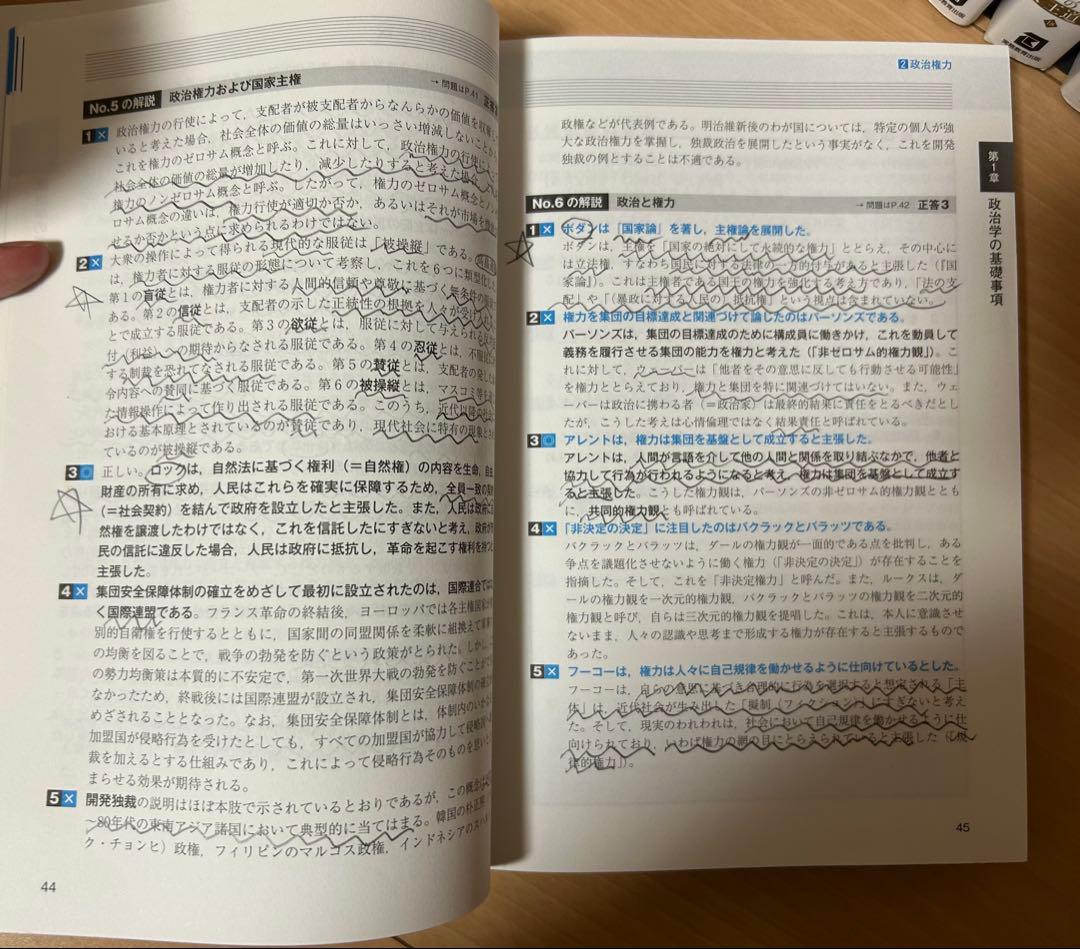 No.5 の解説 政治権力および国家主権 → 問題はP.41 正答3
1 × 政治権力の行使によって，支配者が被支配者からなんらかの価値を
いると考えた場合，社会全体の価値の総量はいっさい増減しないことか
これを権力のゼロサム概念と呼ぶ。これに対して，政治権力の行使に
社会全体の価値の総量が増加したり，減少したりすると考えた場合
権力のノンゼロサム概念と呼ぶ。したがって，権力のゼロサム概念とノン
ロサム概念の違いは，権力行使が適切か否か，あるいはそれが市場を
せるか否かという点に求められるわけではない。
2 × 大衆の操作によって得られる現代的な服従は「被操縦」である。
は，権力者に対する服従の形態について考察し，これを6つに類型化し
第1の盲従とは，権力者に対する人間的信頼や尊敬に基づく無条件の
ある。第2の信従とは，支配者の示した正統性の根拠を人々が受け
とで成立する服従である。第3の欲従とは，服従に対して与えられる
付（利益）への期待からなされる服従である。第4の忍従とは，不
する制裁を恐れてなされる服従である。第5の賛従とは，支配者の発し
令内容への賛同に基づく服従である。第6の被操縦とは，マスコミ等
た情報操作によって作り出される服従である。このうち，近代以降の社会
おける基本原理とされているのが賛従であり，現代社会に特有の現象とさ
ているのが被操縦である。
3 ○ 正しい。ロックは，自然法に基づく権利（＝自然権）の内容を生命，自由
財産の所有に求め，人民はこれらを確実に保障するため，全員一致の
（＝社会契約）を結んで政府を設立したと主張した。また，人民は政府に
然権を譲渡したわけではなく，これを信託したにすぎないと考え，政府が
民の信託に違反した場合，人民は政府に抵抗し，革命を起こす権利を持つと
主張した。
4 × 集団安全保障体制の確立をめざして最初に設立されたのは，国際連合では
く国際連盟である。フランス革命の終結後，ヨーロッパでは各主権国家が
別的自衛権を行使するとともに，国家間の同盟関係を柔軟に組換えて
の均衡を図ることで，戦争の勃発を防ぐという政策がとられた。しかし，
の勢力均衡策は本質的に不安定で，第一次世界大戦の勃発を防ぐことが
なかったため，終戦後には国際連盟が設立され，集団安全保障体制の確立
めざされることとなった。なお，集団安全保障体制とは，体制内のいかなる
加盟国が侵略行為を受けたとしても，すべての加盟国が協力して侵略国
裁を加えるとする仕組みであり，これによって侵略行為そのものを思い
まらせる効果が期待される。
5 × 開発独裁の説明はほぼ本肢で示されているとおりであるが，この概念は
～80年代の東南アジア諸国において典型的に当てはまる。韓国の朴正熙
ク・チョンヒ）政権，フィリピンのマルコス政権，インドネシアのスハル
44
2 政治権力
政権などが代表例である。明治維新後のわが国については，特定の個人が強
大な政治権力を掌握し，独裁政治を展開したという事実がなく，これを開発
独裁の例とすることは不適である。
No.6 の解説 政治と権力 → 問題はP.42 正答3
1 × ボダンは『国家論』を著し，主権論を展開した。
ボダンは，主権を「国家の絶対にして永続的な権力」ととらえ，その中心に
は立法権，すなわち国民に対する法律の一方的付与があると主張した（『国
家論』）。これは主権者である国王の権力を強化する考え方であり，「法の支
配」や「（暴政に対する人民の）抵抗権」という視点は含まれていない。
2 × 権力を集団の目標達成と関連づけて論じたのはパーソンズである。
パーソンズは，集団の目標達成のために構成員に働きかけ，これを動員して
義務を履行させる集団の能力を権力と考えた（「非ゼロサム的権力観」）。こ
れに対して，ウェーバーは「他者をその意思に反しても行動させる可能性」
を権力ととらえており，権力と集団を特に関連づけてはいない。また，ウェ
ーバーは政治に携わる者（＝政治家）は最終的結果に責任をとるべきだとし
たが，こうした考えは心情倫理ではなく結果責任と呼ばれている。
3 ○ アレントは，権力は集団を基盤として成立すると主張した。
アレントは，人間が言語を介して他の人間と関係を取り結ぶなかで，他者と
協力して行為が行われるようになると考え，権力は集団を基盤として成立す
ると主張した。こうした権力観は，パーソンズの非ゼロサム的権力観ととも
に，共同的権力観とも呼ばれている。
4 × 「非決定の決定」に注目したのはバクラックとバラッツである。
バクラックとバラッツは，ダールの権力観が一面的である点を批判し，ある
争点を議題化させないように働く権力（「非決定の決定」）が存在することを
指摘した。そして，これを「非決定権力」と呼んだ。また，ルークスは，ダ
ールの権力観を一次元的権力観，バクラックとバラッツの権力観を二次元的
権力観と呼び，自らは三次元的権力観を提唱した。これは，本人に意識させ
ないまま，人々の認識や思考まで形成する権力が存在すると主張するもので
あった。
5 × フーコーは，権力は人々に自己規律を働かせるように仕向けているとした。
フーコーは，自らの意思に基づき合理的に行為を選択すると想定される「主
体」は，近代社会が生み出した「擬制（フィクション）」にすぎないと考え
た。そして，現実のわれわれは，社会において自己規律を働かせるように仕
向けられており，いわば権力の網の目にとらえられていると主張した（「規
律的権力」）。
第1章
政治学の基礎事項
45